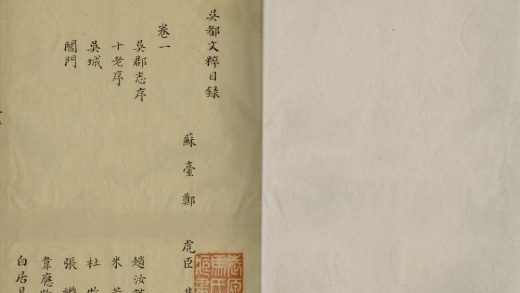 吳都文粹目錄
蘇臺鄭虎臣
卷一
吳郡志序 趙汝
十老序 米
吳城 杜牧
閶門 張繼
韋應物
白居易